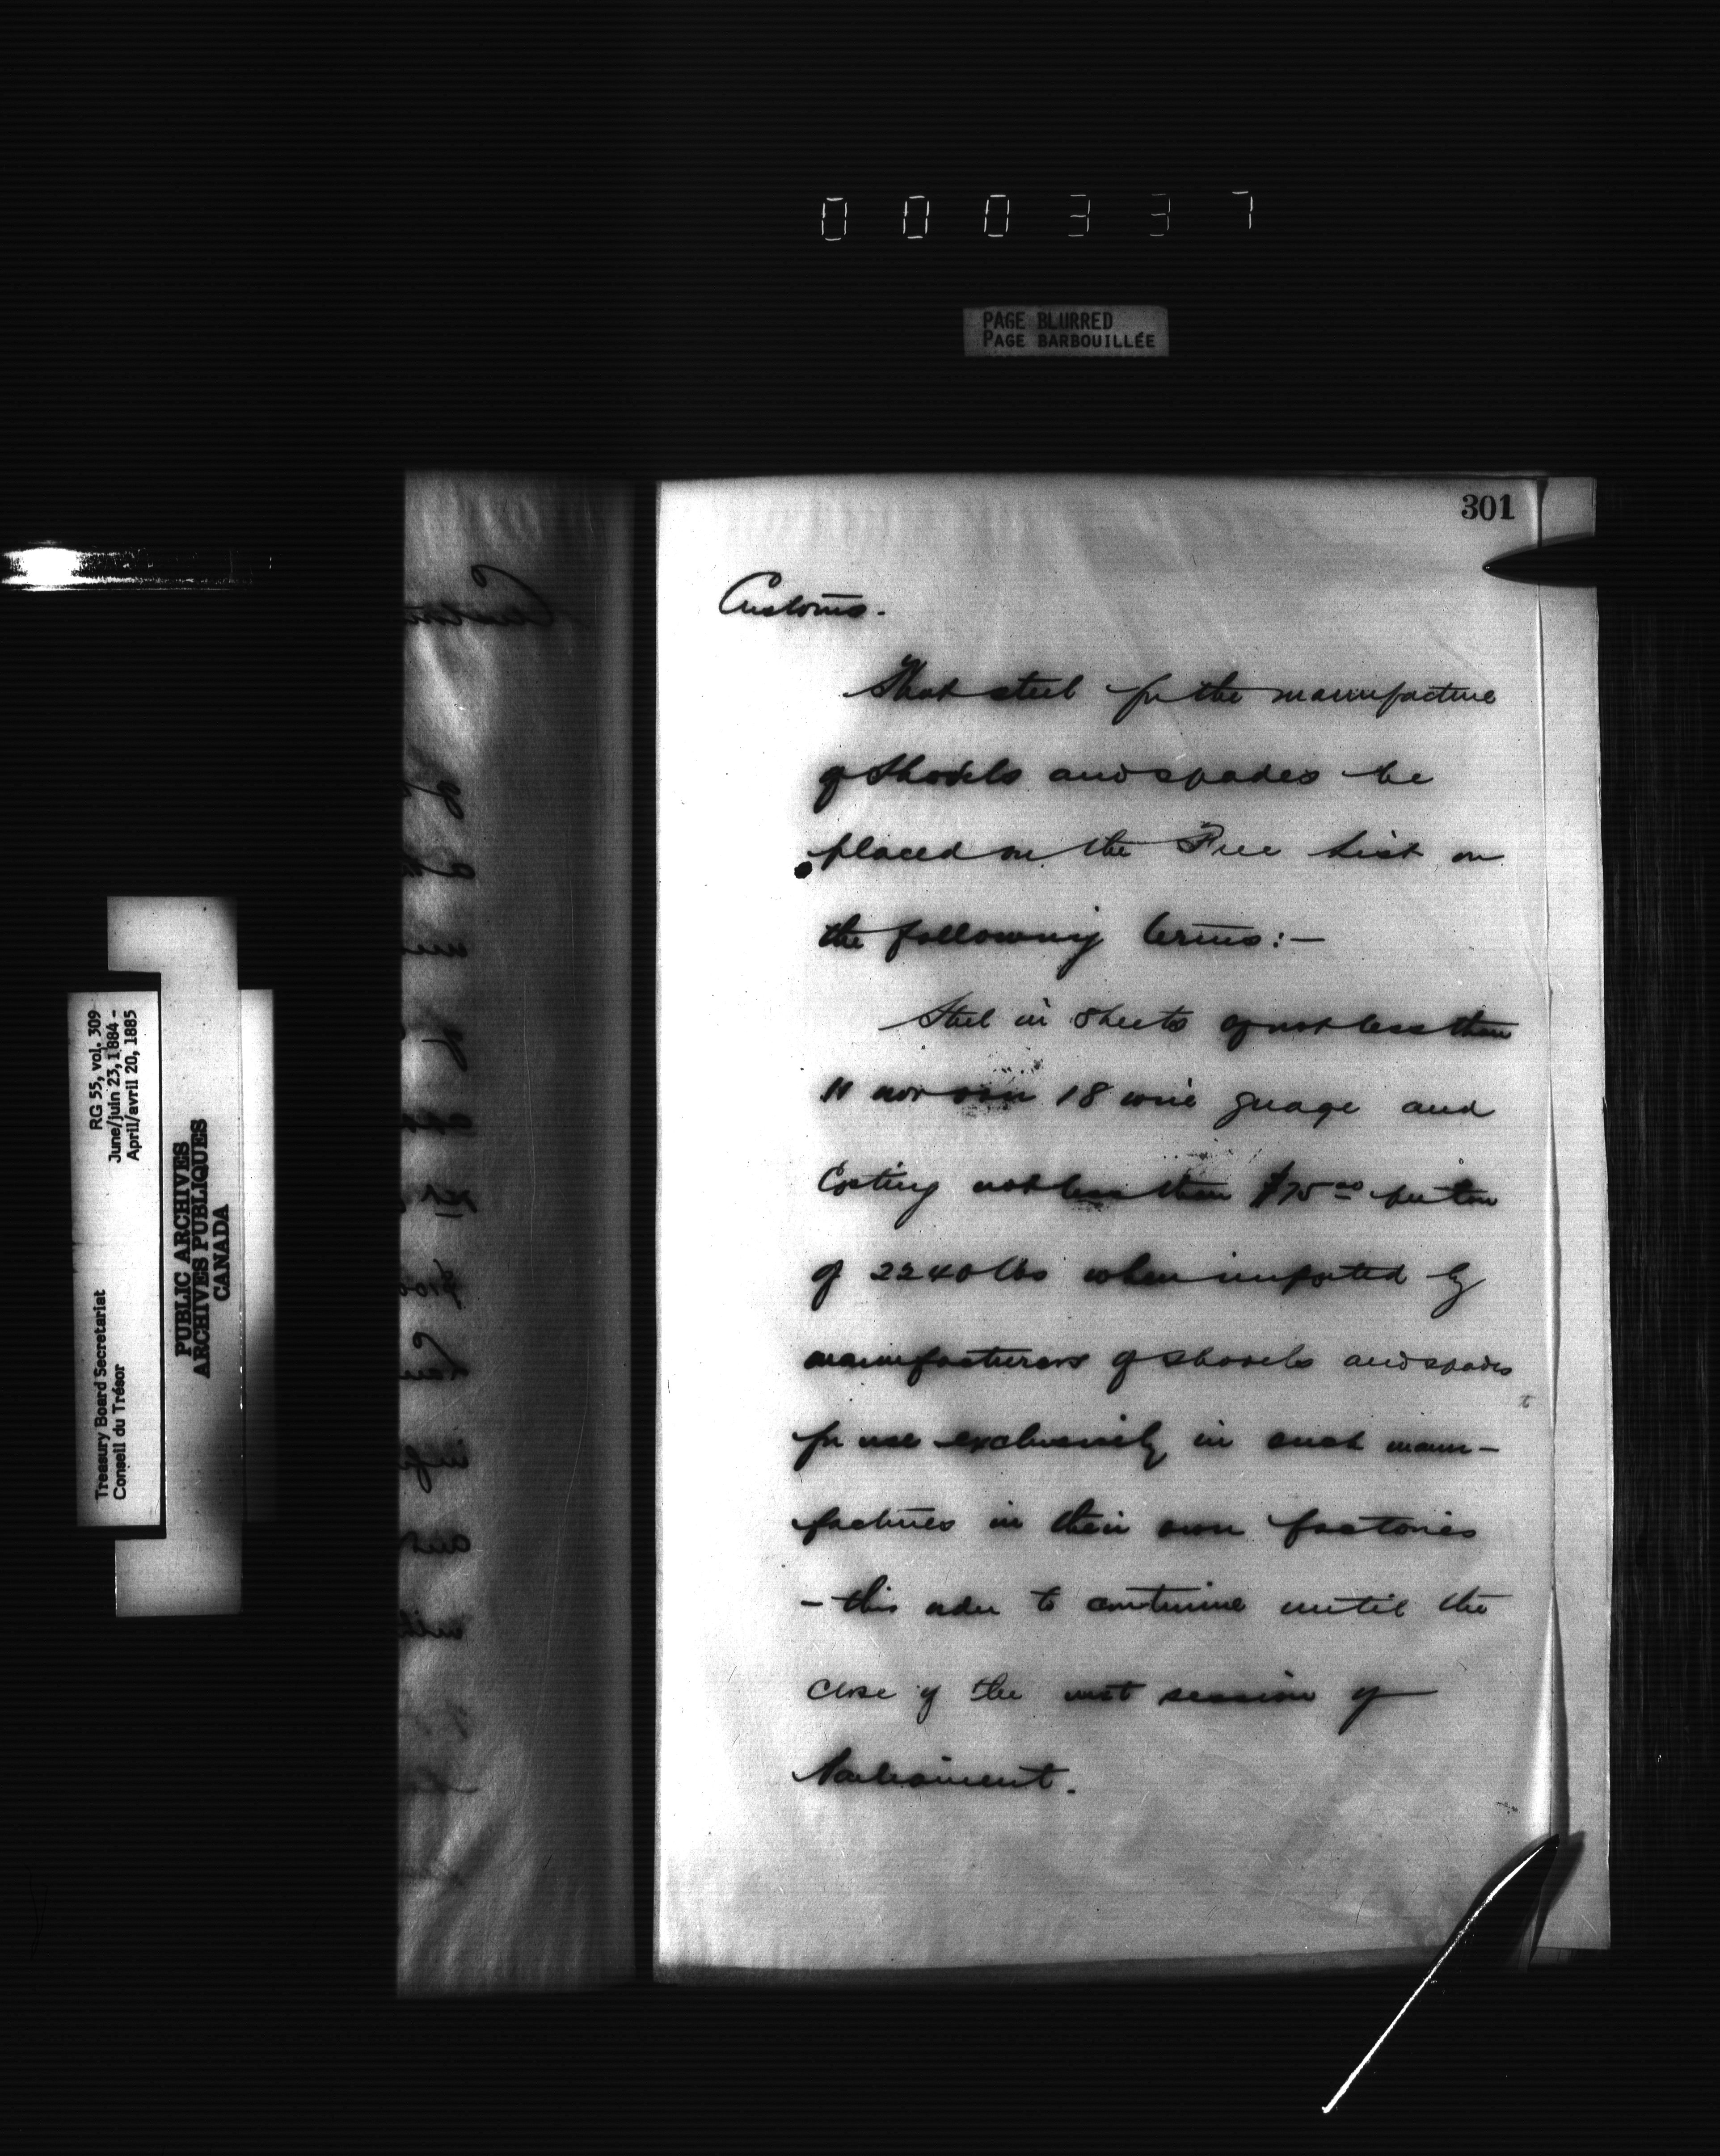 000337
PAGE BLURRED
PAGE BARBOUILLÉE
301
Customs.
That steel for the manufacture
of shovels and spades be
placed on the Free List on
the following terms:—
Steel in sheets of not less than
11 nor over 18 wire guage and
Costing not less than $75.00 per ton
of 2240 lbs when imported by
manufacturers of shovels and spades
for use exclusively in such manu-
factures in their own factories
- this order to continue until the
close of the next session of
Parliament.
RG 55, vol. 309
June/juin 23, 1884 -
April/avril 20, 1885
Treasury Board Secretariat
Conseil du Trésor
PUBLIC ARCHIVES
ARCHIVES PUBLIQUES
CANADA